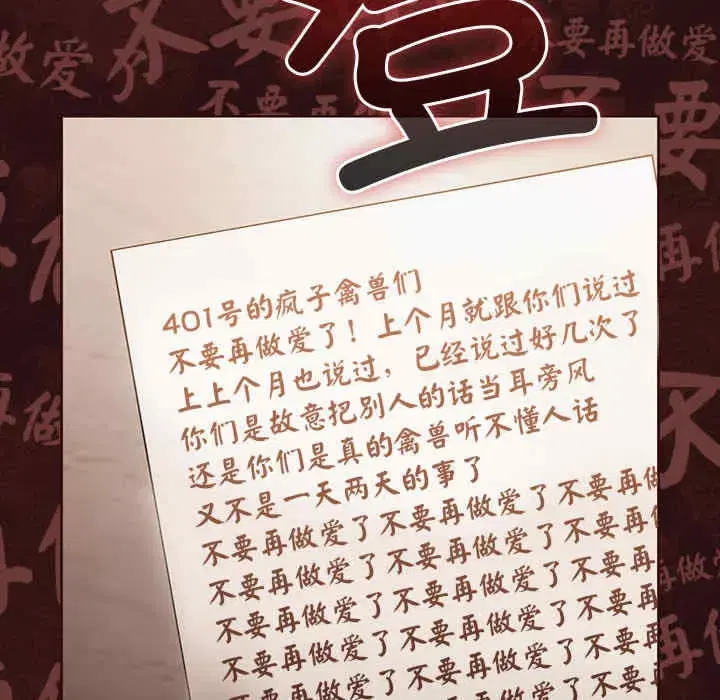 不要再做爱
不要再做爱
不要再做爱了
登
不要
再做
401号的疯子禽兽们
不要再做爱了！上个月就跟你们说过
上上个月也说过，已经说过好几次了
你们是故意把别人的话当耳旁风
还是你们是真的禽兽听不懂人话
又不是一天两天的事了
不要再做爱了不要再做爱了不要再做
不要再做爱了不要再做爱了不要再
不要再做爱了不要再做爱了不要再
不要再做爱了不要再做爱了不要再
不要再做爱了不要再做爱了不要再